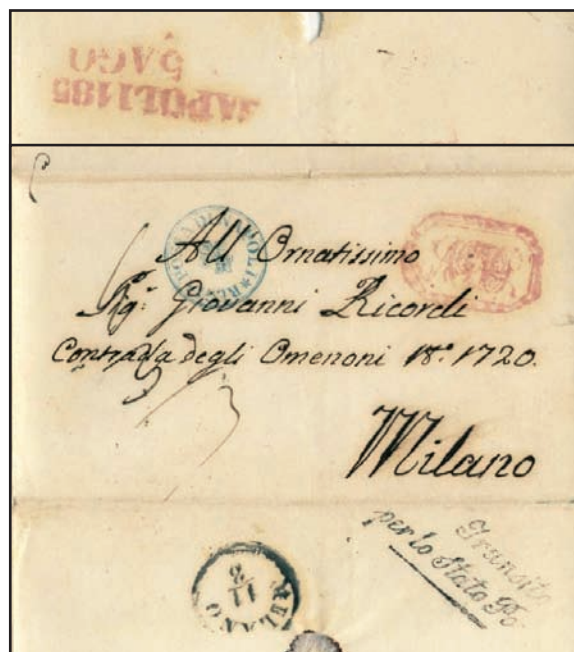 NAPOLI 185
5 AGO
REAL POSTA DI NAPOLI
All Ornatissimo
Sig.r Giovanni Ricordi
Contrada degli Omenoni N.o 1720.
Milano
Transito
per lo Stato Po
MILANO
11
8